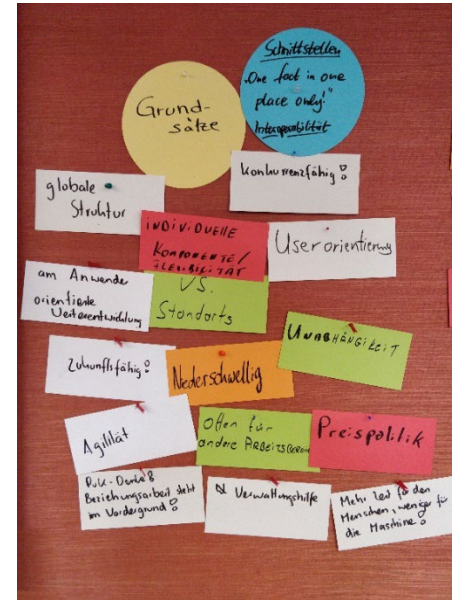 Grund-
sätze
Schnittstellen
"One fact in one
place only!"
Interoperabilität
Konkurrenzfähig!
globale
Struktur
INDIVIDUELLE
KOMPONENTE/
FLEXIBILITÄT
Userorientierung
am Anwender
orientierte
Weiterentwicklung
VS.
Standarts
UNABHÄNGIGKEIT
Zukunftsfähig!
Niederschwellig
Agilität
Offen für
andere ARBEITSBEREICH
Preispolitik
Beziehungsarbeit steht
im Vordergrund!
& Verwaltungshilfe
Mehr Zeit für den
Menschen, weniger für
die Maschine!